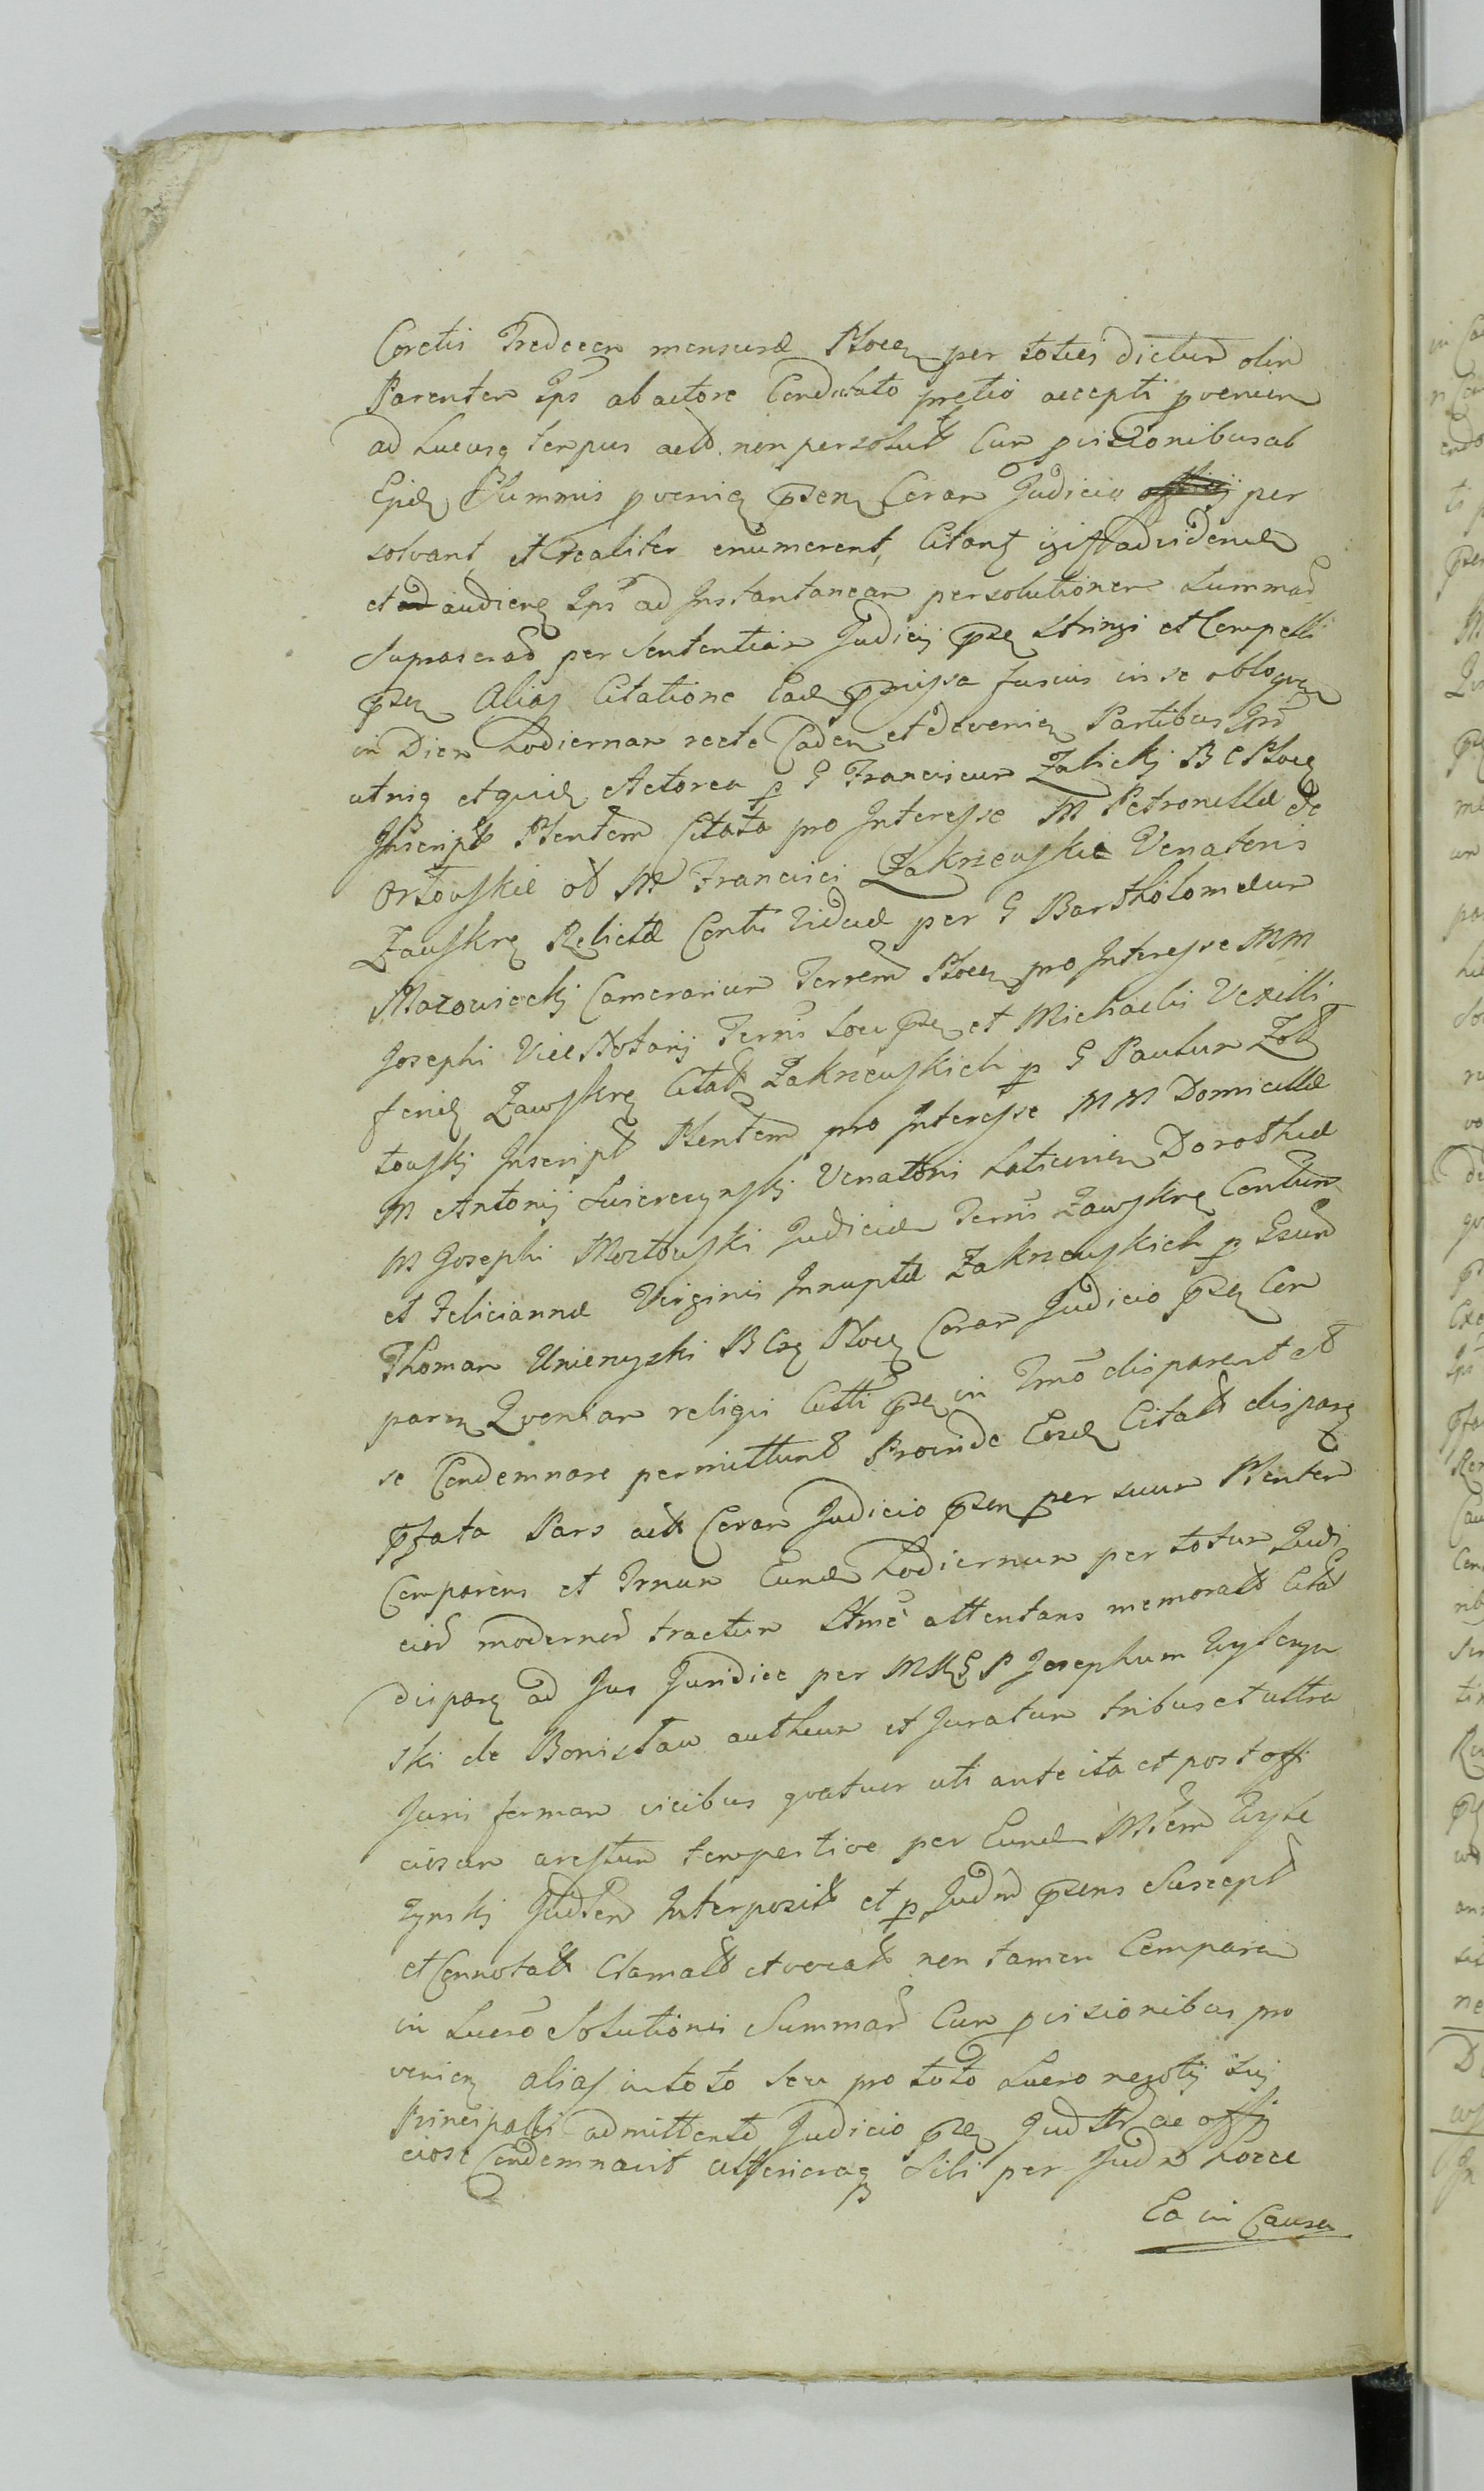 Coretis Tredecem mensurae Plocen per toties dictum olim
Parentem Ips ab actore Conducato pretio accepti provenien
ad hucusq tempus actd. non persolut Cum provisionibus ab
Eisd Summis provenien psen Coram Judicio per
solvant et realiter enumerent, Citant igitt ad videnud
et audiend Ips ad Instantaneam persolutionem Summar
Suprascrad per Sententiam Judicij psen Stringi et Compelli
psen Alias Citatione Ead praemissa fusius in se obloquen
in Diem hodiernam recte Caden et devenien Partibus Ipr
utrisq et quid Actorea p G Franciscum Zalickj B C Plocen
Inscript Plentem Citata pro Interesse M Petronellae de
Orłowskie ol M Francisci Zakrzewskie Venatoris
Zawskrn Relictae Conths Viduae per G Bartholomaeum
Mazowieckj Camerarium Terrem Plocen pro Interesse MM
Josephi Vice Notarij Terris Loci psen et Michaelis Vexilli
feriid Zawskrn Citatt Zakrzewskich p G Paulum Zoł
towskj Inscript Plentem pro Interesse MM Domicellae
M Antonij Swierczynskj Venatoris Laticinien Dorotheae
M Josephi Mozłowski Judicidae Terris Zawskrn Conthum
et Feliciannae Virginis Innuptae Zakrzewskich p Gsum
Thomam Unienyski B Crz Plocen Coram Judicio psen Com
paren Quoniam reliqui Citti psen in Tmo disparent et
se Condemnare permittunt Proinde Eosd Citatt disparen
pfata Pars actt Coram Judicio psen per suum Plentem
Comparens et Tmum Eund hodiernum per totum Judi
ciod modernod tractum Ltme attentans memoratt Citat
disparen ad Jus Juridice per MRGP Josephum Wyłczyn
ski de Bonisław authum et Juratum tribus et ultra
Juris formam vicibus quatuor uti ante ita et post offi
ciosum arestum tempestive per Eund Mrem Wyłc
zynskj Judlem Interposit et p Judm psens Suscept
et Connotatt Clamatt et vocatt non tamen Comparen
in Lucro Solutionis Summar Cum provisionibus pro
venien alias in toto seu pro toto Lucro negotij sui
Principalis admittente Judicio psen Jud Ltd ac offi
ciose Condemnavit Ulteriorag Sibi per Judm hocce
Ea in Causa